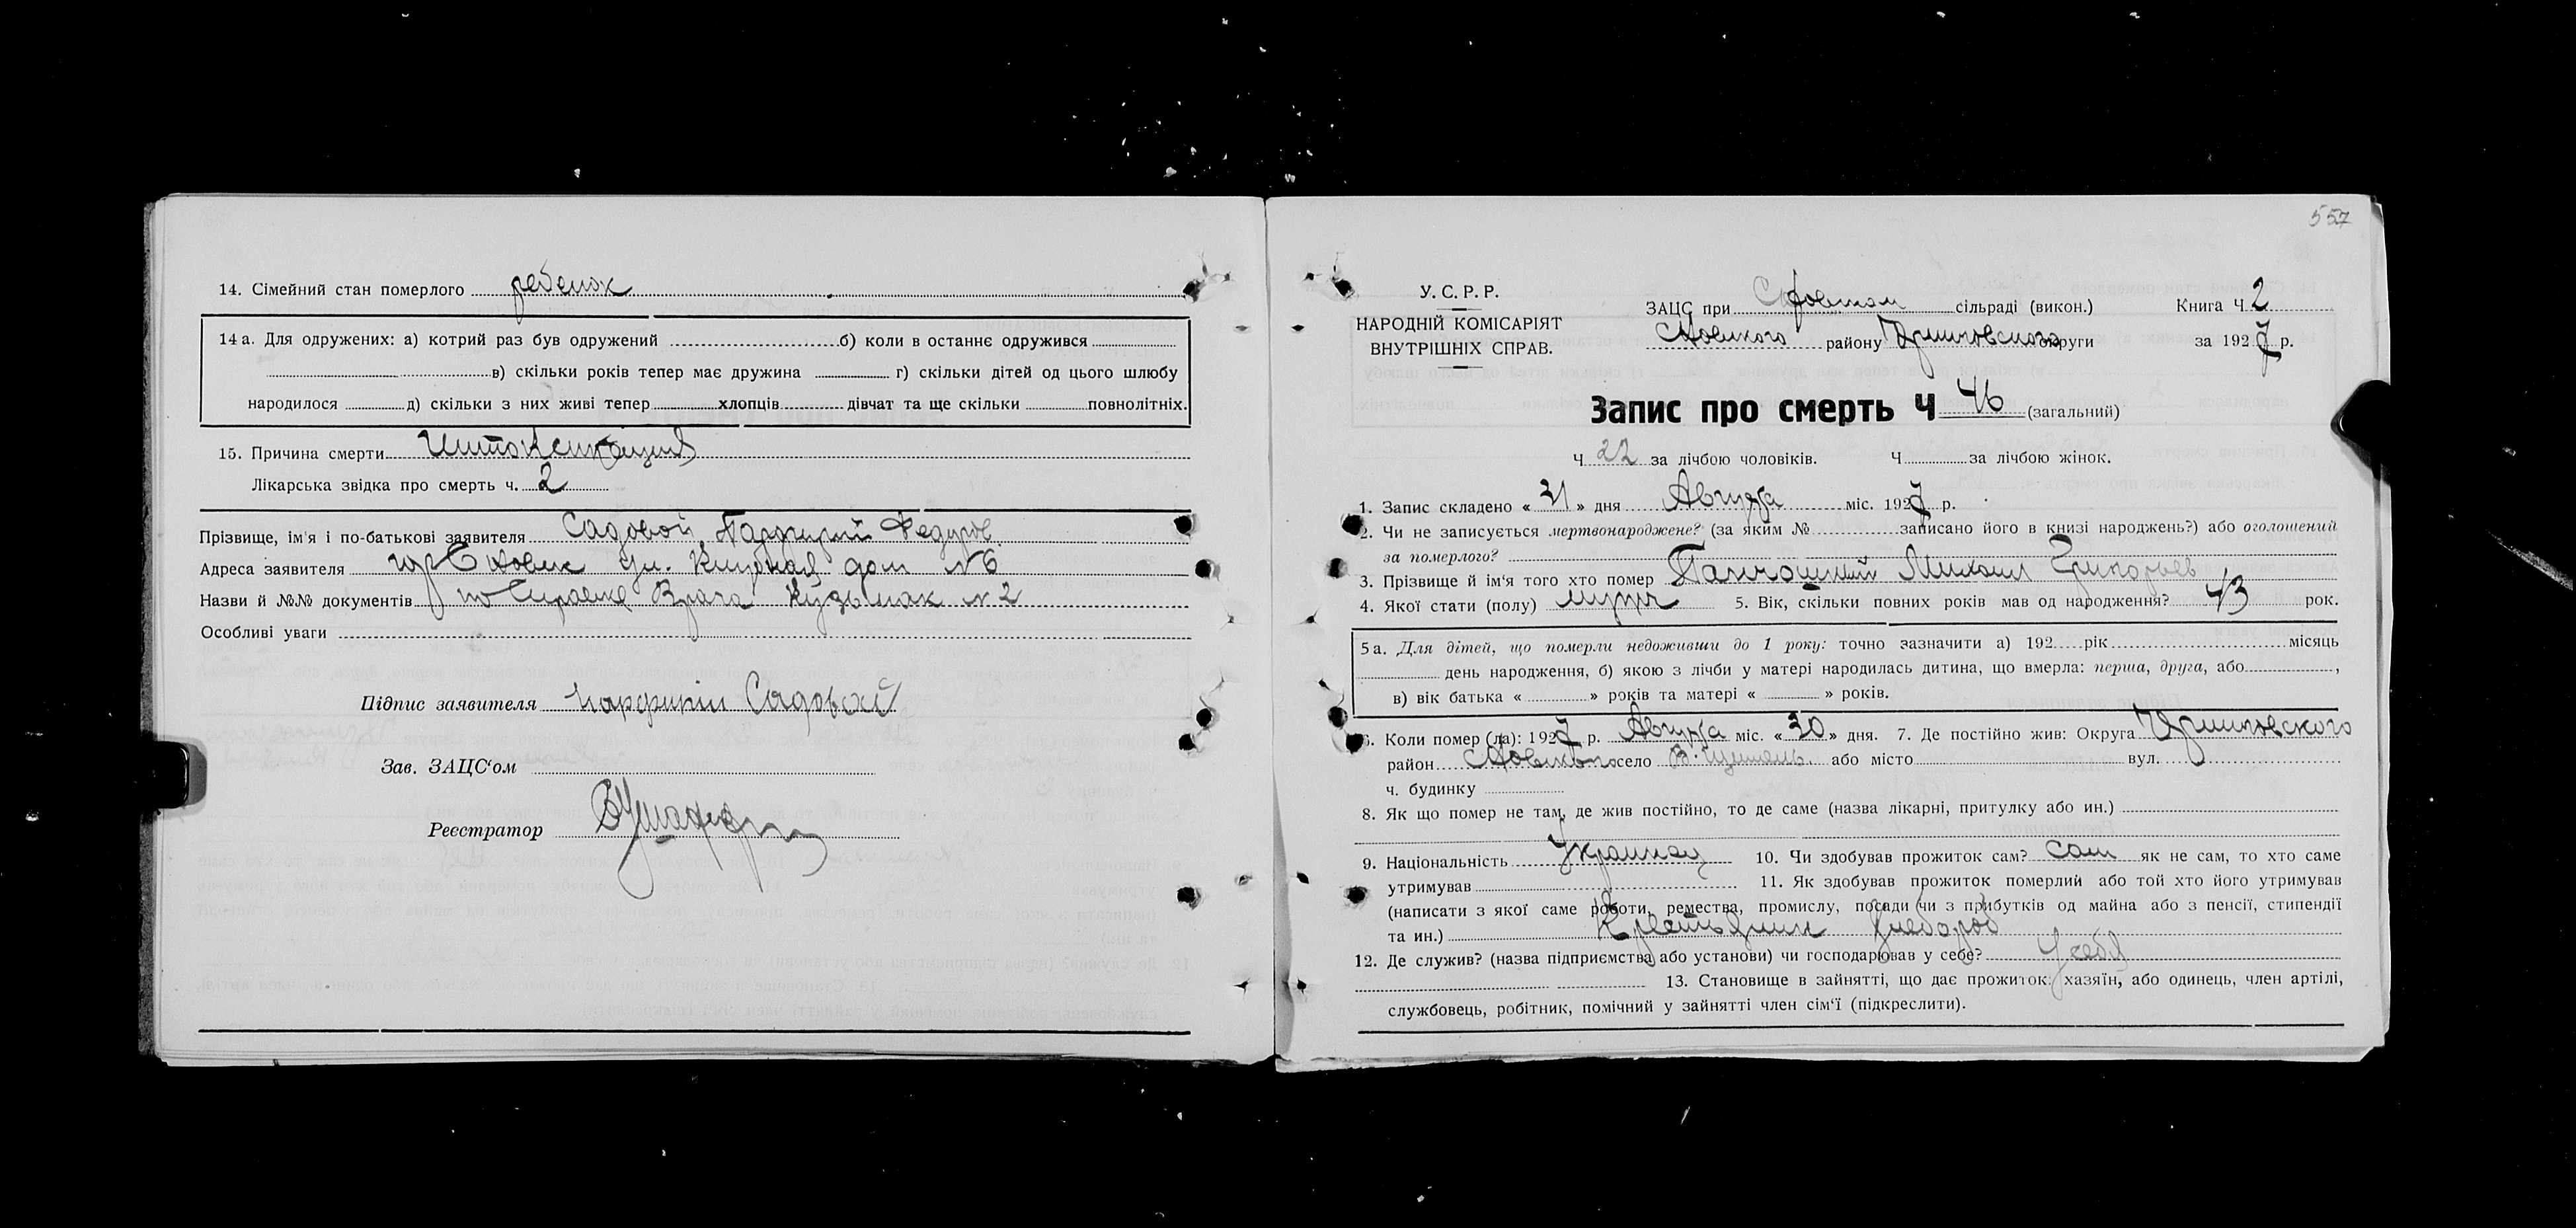 14. Сімейний стан померлого ребенок
14а. Для одружених: а) котрий раз був одружений б) коли в останнє одружився
в) скільки років тепер має дружина г) скільки дітей од цього шлюбу
народилося д) скільки з них живі тепер хлопців дівчат та ще скільки повнолітніх.
15. Причина смерти Интоксикация
Лікарська звідка про смерть ч. 2
Прізвище, ім'я і по-батькові заявителя Садовой Парфирий Федоров
Адреса заявителя гор Сновск ул. дом №6
Назви й №№ документів по Справке Врача Кудьмак №2
Особливі уваги
Підпис заявителя Садовой
Зав. ЗАЦС'ом
Реєстратор
557
У. С. Р. Р.
НАРОДНІЙ КОМІСАРІЯТ
ВНУТРІШНІХ СПРАВ.
ЗАЦС при сільраді (викон.) Книга Ч. 2
Сновского району округи за 1927 р.
Запис про смерть Ч 46 (загальний)
Ч 22 за лічбою чоловіків. Ч за лічбою жінок.
1. Запис складено « 31 » дня Августа міс. 1927 р.
2. Чи не записується мертвонароджене? (за яким № записано його в книзі народжень?) або оголошений
за померлого?
3. Прізвище й ім'я того хто помер Михаил Григорьев
4. Якої стати (полу) мужч 5. Вік, скільки повних років мав од народження? 43 рок.
5а. Для дітей, що померли недоживши до 1 року: точно зазначити а) 192 рік місяць
день народження, б) якою з лічби у матері народилась дитина, що вмерла: перша, друга, або ,
в) вік батька « » років та матері « » років.
6. Коли помер (ла): 1927 р. Августа міс. « 30 » дня. 7. Де постійно жив: Округа
район Сновского село В. Щимель або місто вул.
ч. будинку
8. Як що помер не там, де жив постійно, то де саме (назва лікарні, притулку або ин.)
9. Національність Украинец 10. Чи здобував прожиток сам? Сам як не сам, то хто саме
утримував 11. Як здобував прожиток померлий або той хто його утримував
(написати з якої саме роботи, ремества, промислу, посади чи з прибутків од майна або з пенсії, стипендії
та ин.) Крестьянин Хлебороб
12. Де служив? (назва підприємства або установи) чи господарював у себе? У себя
13. Становище в зайнятті, що дає прожиток: хазяїн, або одинець, член артілі,
службовець, робітник, помічний у зайнятті член сім'ї (підкреслити).